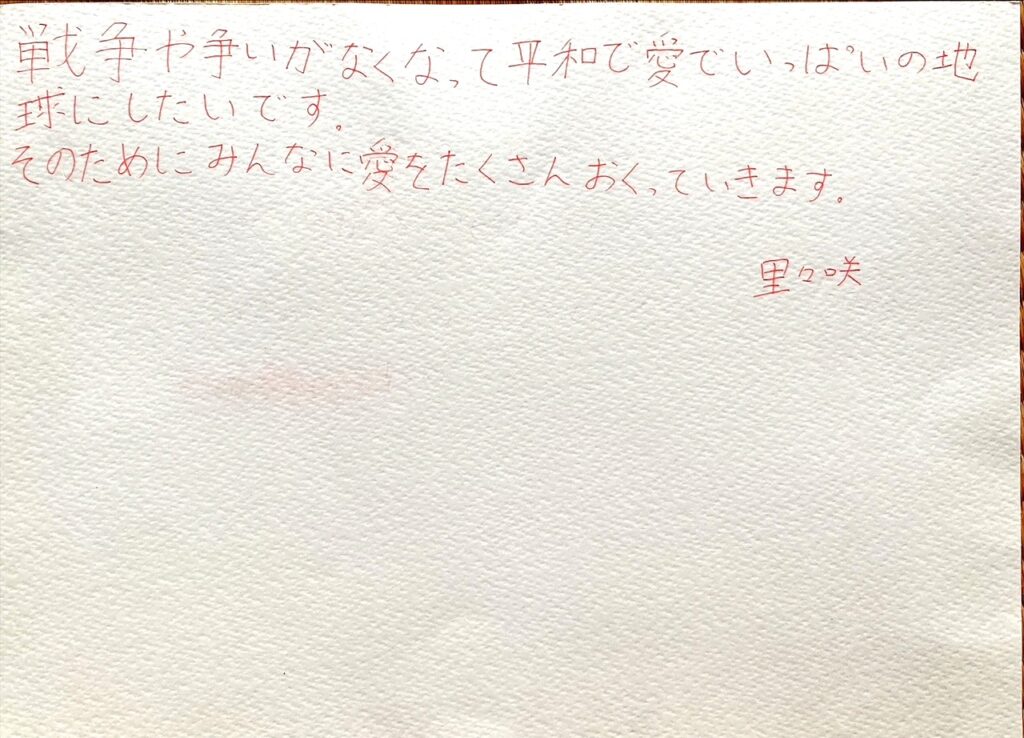 戦争や争いがなくなって平和で愛でいっぱいの地
球にしたいです。
そのためにみんなに愛をたくさんおくっていきます。
里々咲